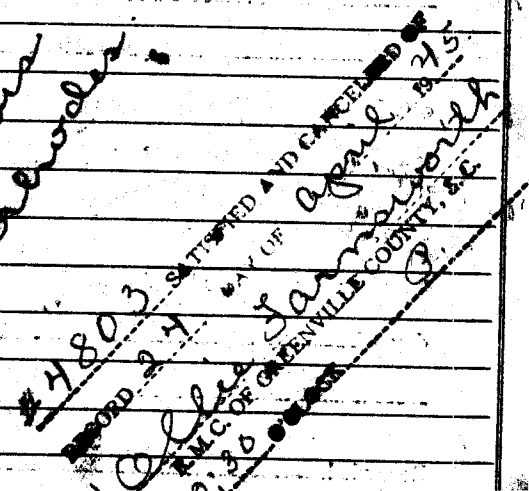 SATISFIED AND CANCELLED OF
RECORD 24 DAY OF April 1945
Ollie Farnsworth
R.M.C. OF GREENVILLE COUNTY, S.C.
:30 O'CLOCK P.
#4803